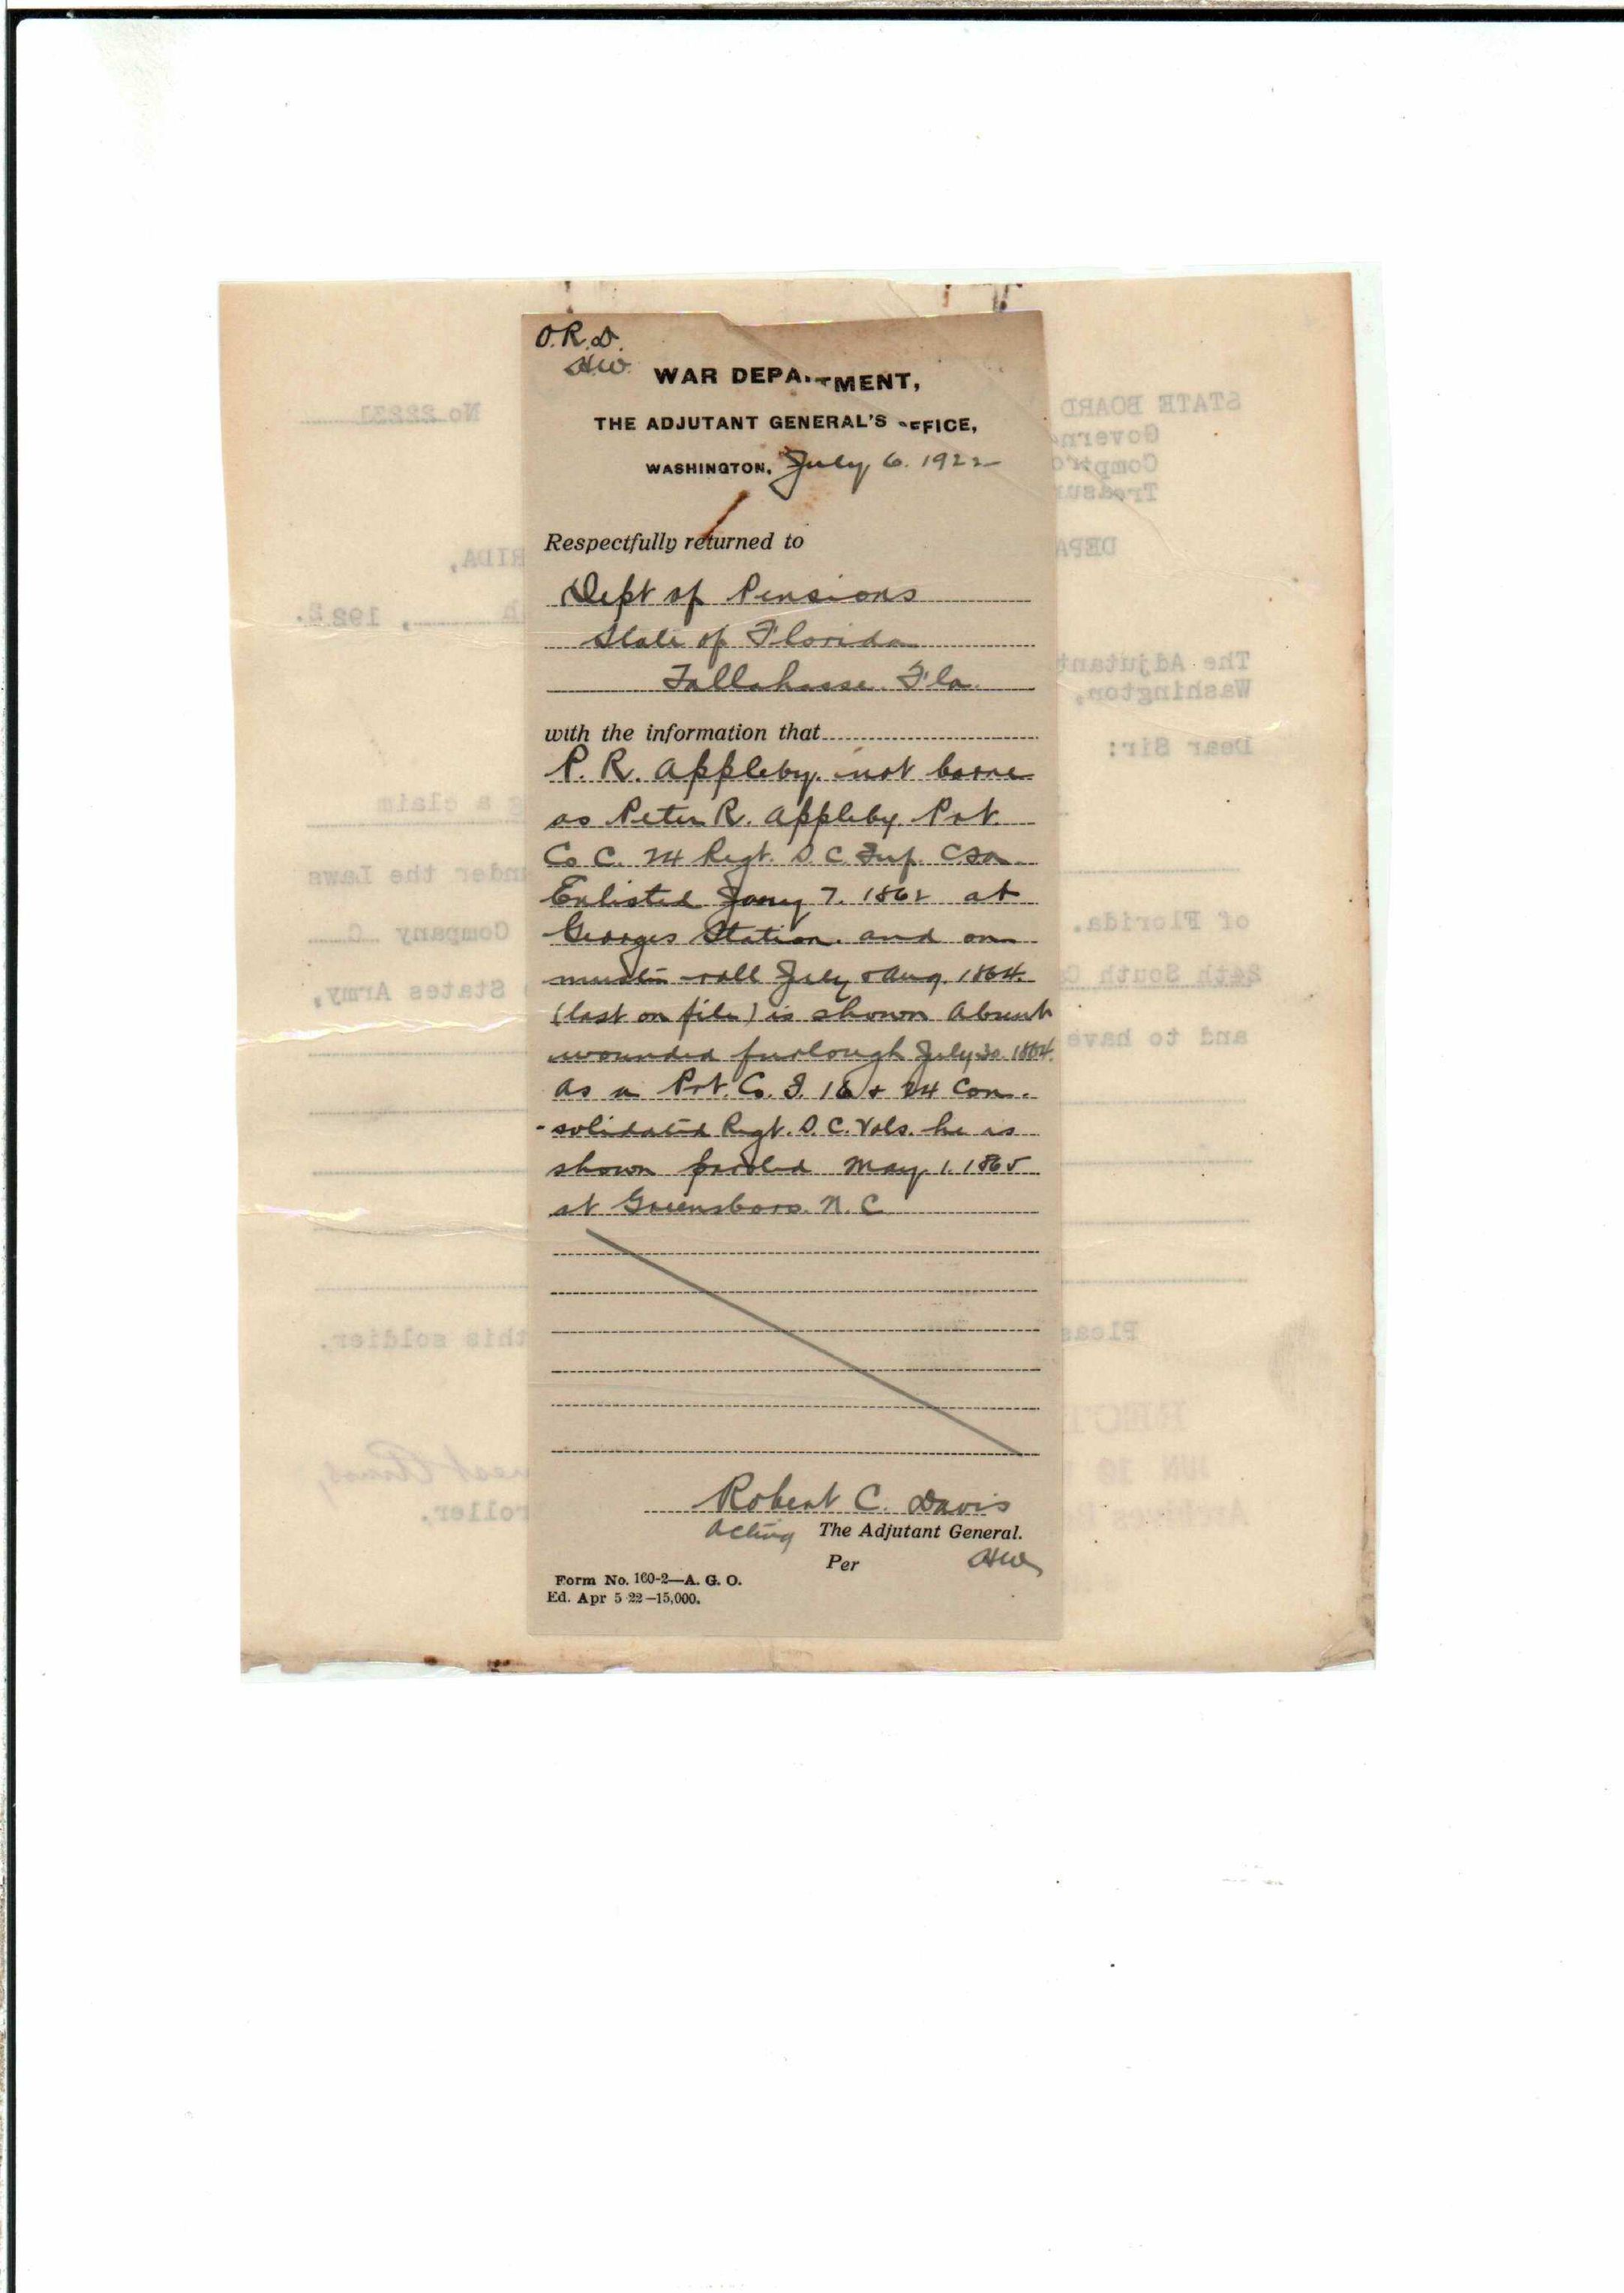 O.R.D.
H.W.
WAR DEPARTMENT,
THE ADJUTANT GENERAL'S OFFICE,
WASHINGTON, July 6. 1922
Respectfully returned to
Dept of Pensions
State of Florida
Tallahasse. Fla.
with the information that
P. R. Appleby. not borne
as Peter R. Appleby. Pvt.
Co C. 24 Regt. S. C. Inf. CSA
Enlisted Jany 7. 1862 at
Georges Station. and on
muster roll July & Aug. 1864.
(last on file) is shown Absent
wounded furlough July 30. 1864.
As a Pvt. Co. I. 16 & 24 Con.
-solidated Regt. S. C. Vols. he is
shown paroled May. 1. 1865
at Greensboro. N. C
Robert C. Davis
Acting The Adjutant General.
Per HW
Form No. 160-2—A. G. O.
Ed. Apr 5-22—15,000.
STATE BOARD
No 22231
Govern
Comptro
Treasu
DEPA
RIDA,
h , 1922.
The Adjutant
Washington,
Dear Sir:
g a claim
under the Laws
of Florida.
Company C
24th South C
States Army,
and to have
Pleas
this soldier.
JUN 10
roller.